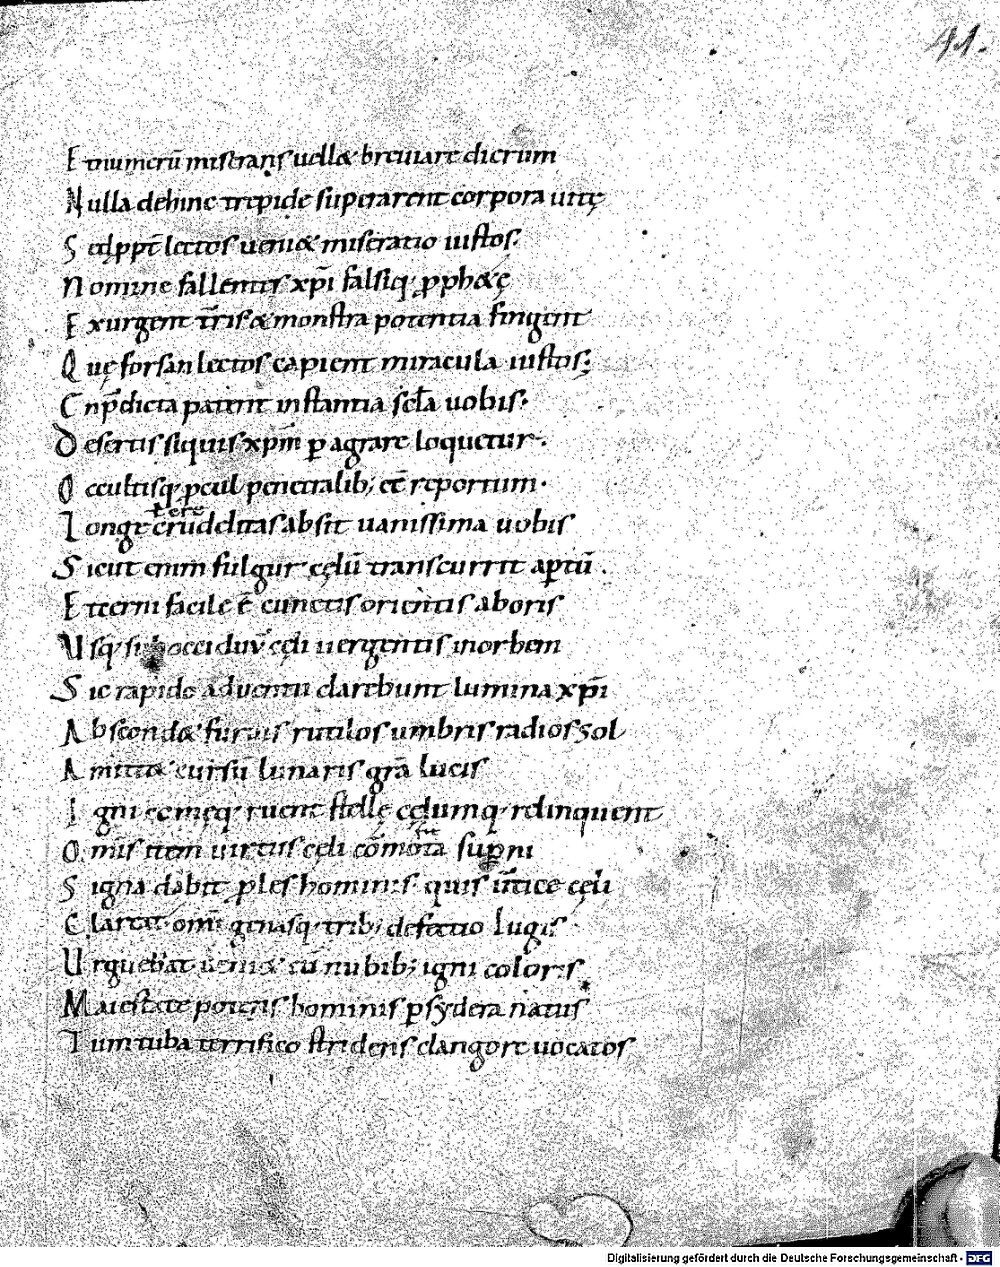 41.
Et numerū miserans uellet breuiare dierum
Nulla dehinc trepidę superarent corpora uitę
Sed ppt̄ lectos ueniet miseratio iustos.
Nomine fallentis xp̄i falsiq; p̄phetę
Exurgent t̄ris et monstra potentia fingent
Quę forsan lectos capient miracula iustos;
En p̄dicta patent instantia scl̄a uobis.
Desertis siquis xpm̄ peragrare loquetur.
Occultisq; pcul penetralib; eē repertum.
Longe credulitas absit uanissima uobis
Sicut enim fulgur cęlū transcurrit aptū.
Et cerni facile ē cunctis orientis aboris
Usq; sub occiduū cęli uergentis inorbem
Sic rapido aduentu clarebunt lumina xp̄i
Abscondet furuis rutilos umbris radios sol
Amittet cursū lunaris grā lucis
Igni comęq; ruent stellę cęlumq; relinquent
Om̄is item uirtus cęli cōmota supni
Signa dabit ples hominis quis ūtice cęli
Clarent omīgenasq; trib; defectio lugis
Urguebat ueniet cū nubib; igni coloris
Maiestate potens hominis p sydera natus
Tum tuba terrifico stridens clangore uocatos
Digitalisierung gefördert durch die Deutsche Forschungsgemeinschaft - DFG